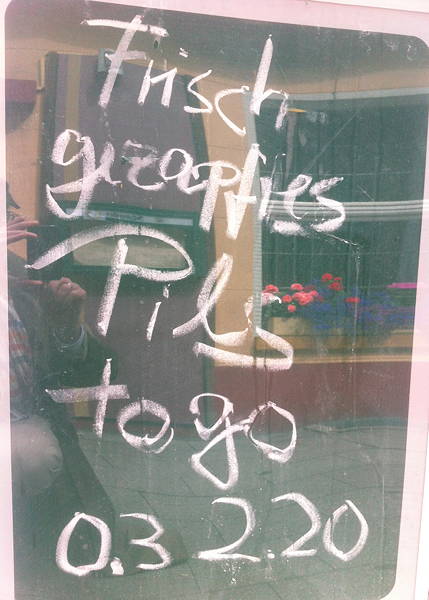 Frisch
gezapftes
Pils
to go
0.3 2.20